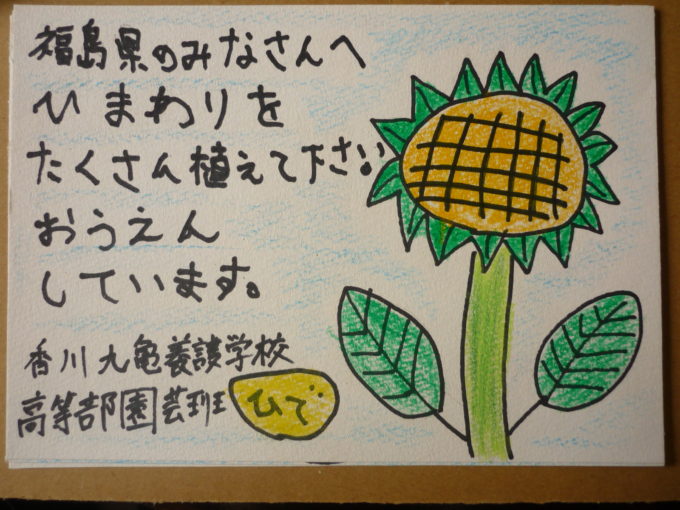 福島県のみなさんへ
ひまわりを
たくさん植えて下さい
おうえん
しています。
香川丸亀養護学校
高等部園芸班 ひで